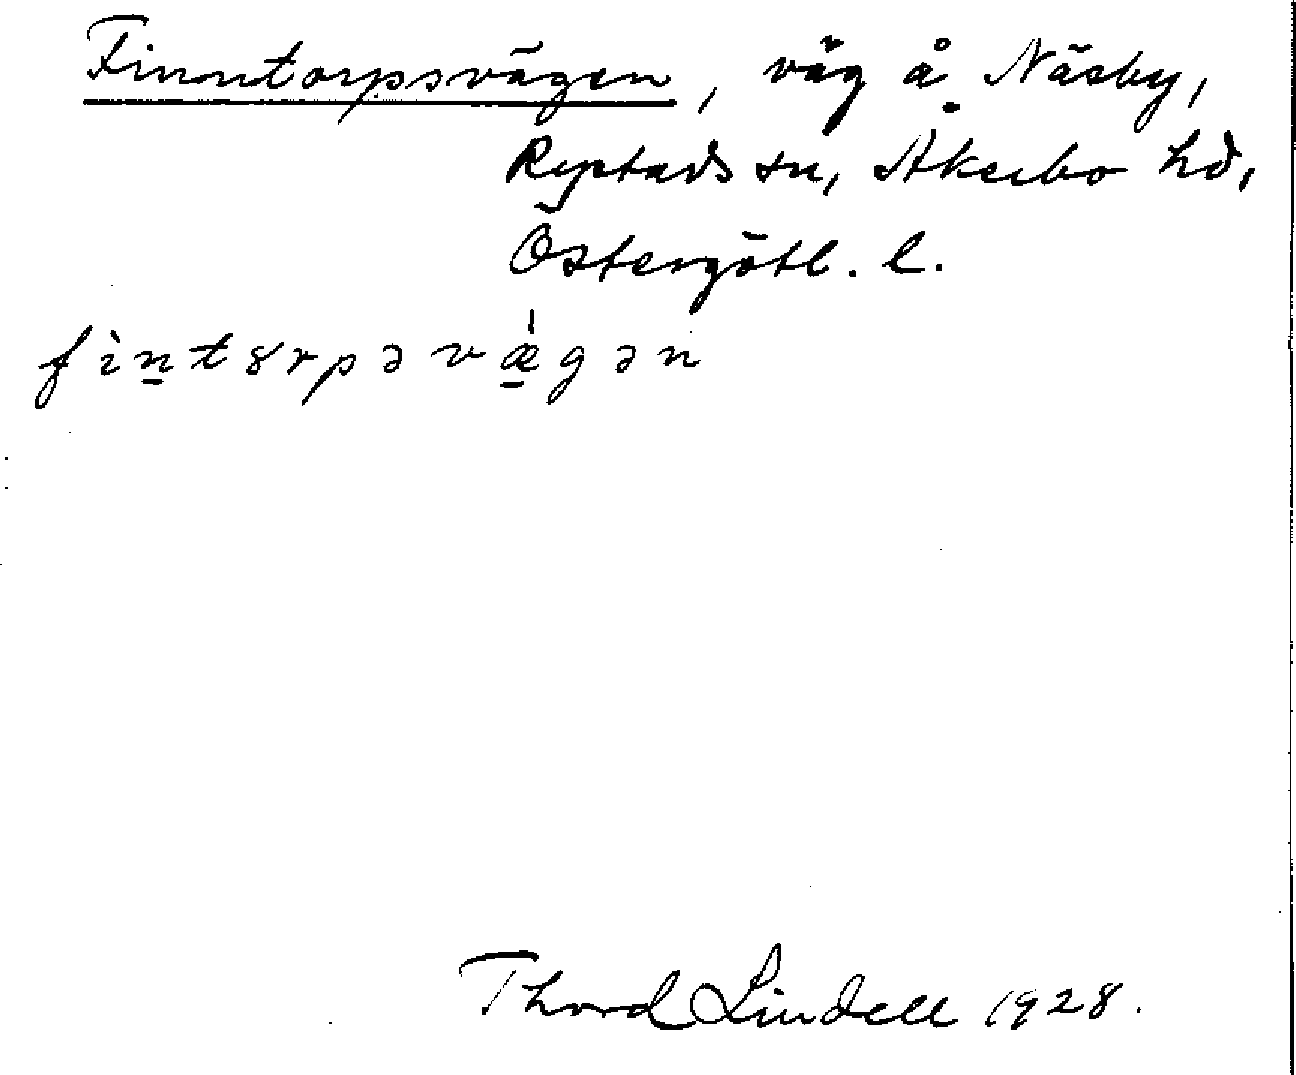 Finntorpsvägen, väg å Näsby,
Rystads sn, Åkerbo hd,
Östergötl. l.
fìn̠t8rpəvǽ̠gən
Thord Lindell 1928.